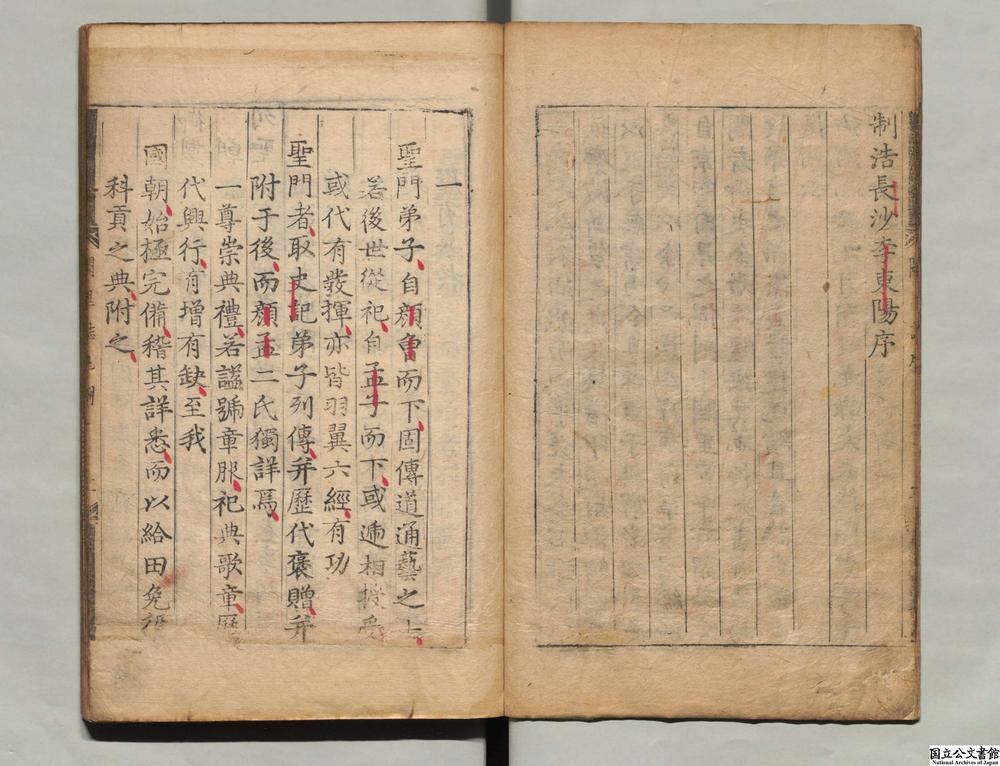 制浩長沙李東陽序
一
聖門弟子自顔曾而下固傳道通藝之士
若後世從祀自孟子而下或遞相授受
或代有發揮亦皆羽翼六經有功
聖門者取史記弟子列傳并歷代褒贈并
附于後而顔孟二氏獨詳焉
一尊崇典禮若謚號章服祀典歌章歷
代興行有增有缺至我
國朝始極完備稽其詳悉而以給田免役
科貢之典附之
国立公文書館
National Archives of Japan